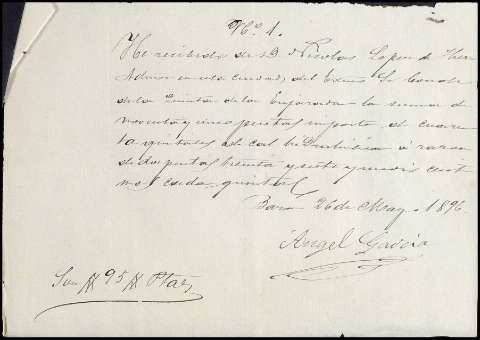 Nº 1.
He recibido de D Nicolas Lopez de
Admor en esta ciudad, del Exmo Sr Conde
de la Quinta de la Enjarada la suma de
noventa y cinco pesetas importe de cuaren
ta quintales de cal hidraulica á razon
de dos pesetas treinta y siete y medio centi
mos cada quintal
26 de Mayo 1896
Angel Garcia
Son # 95 # Ptas